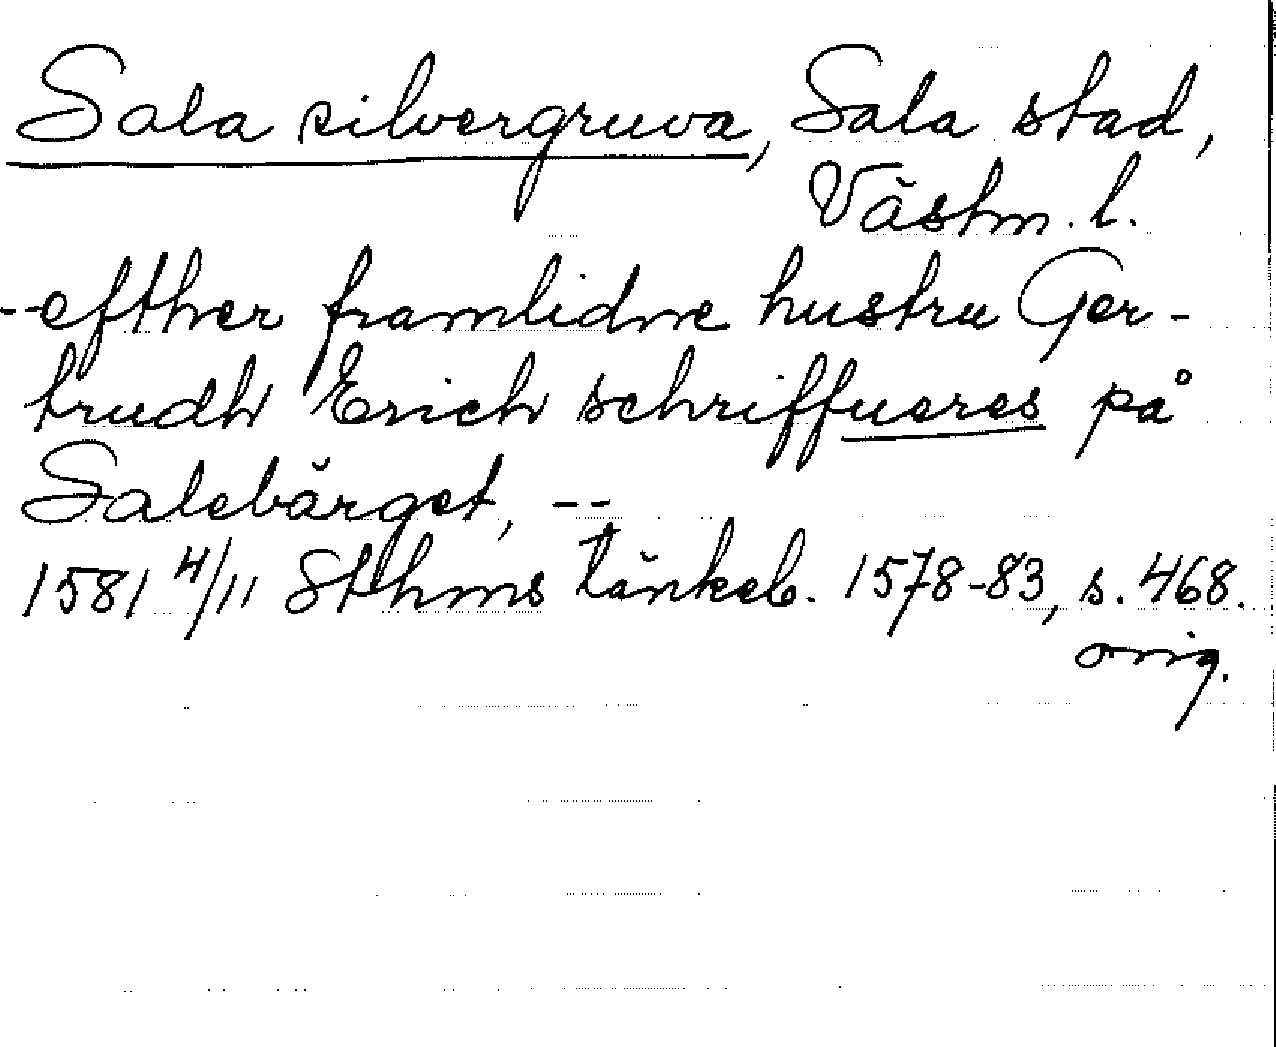 Sala silvergruva, Sala stad,
Västm. l.
--efther framlidne hustru Ger-
trudh Erich schriffueres på
Salebärget, --
1581 4/11 Sthms tänkeb. 1578-83, s. 468.
orig.